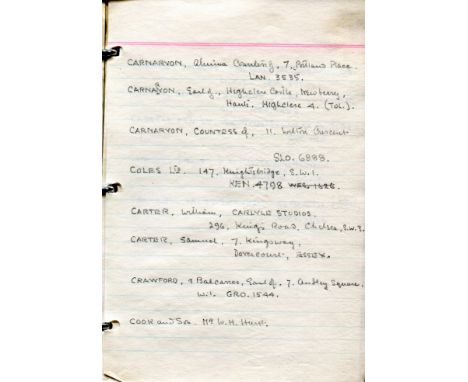 CARNARVON, Almina Countess of, 7, Portland Place.
LAN. 3535.
CARNARVON, Earl of, Highclere Castle, Newberry,
Hants. Highclere 4. (TOL.)
CARNARVON, COUNTESS of, 11. Wilton Crescent
SLO. 6888.
COLES Ltd. 147, Knightsbridge, S.W.1.
KEN. 4798 WES. 1626.
CARTER, William, CARLYLE STUDIOS.
296, Kings Road, Chelsea, S.W.3.
CARTER, Samuel, 7. Kingsway,
Dovercourt, ESSEX.
CRAWFORD, & Balcarres, Earl of, 7. Audley Square.
W.1. GRO. 1544.
COOK and Son. Mr W. H.